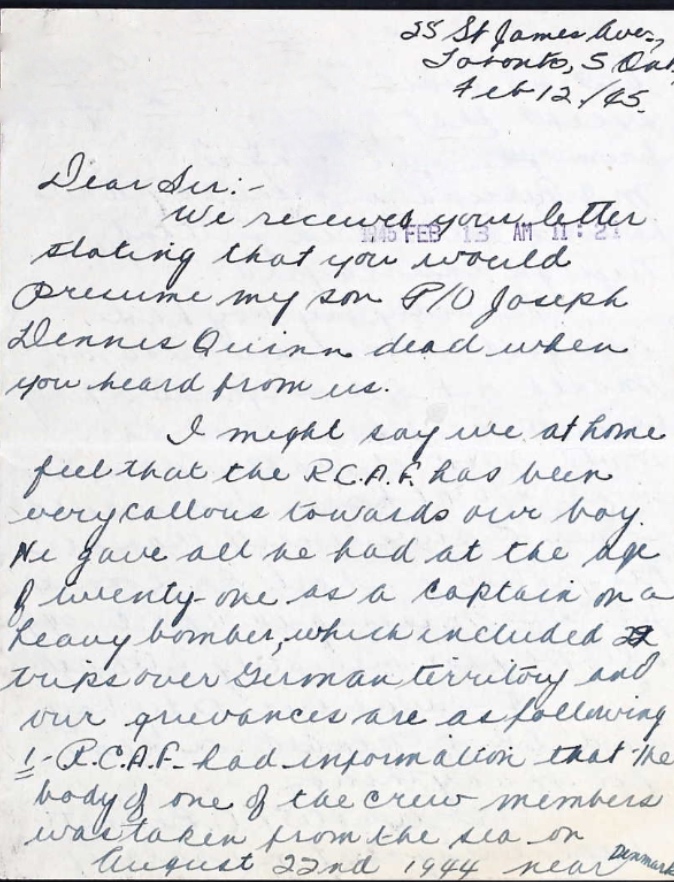 25 St James Ave.,
Toronto, 5 Ont.
Feb 12/45.
Dear Sir:-
We received your letter
1945 FEB 13 AM 11:21
stating that you would
presume my son P/O Joseph
Dennis Quinn dead when
you heard from us.
I might say we at home
feel that the R.C.A.F. has been
very callous towards our boy.
He gave all he had at the age
of twenty-one as a captain on a
heavy bomber, which included
trips over German territory and
our grievances are as following
1- R.C.A.F. had information that the
body of one of the crew members
was taken from the sea on
August 22nd 1944 near Denmark